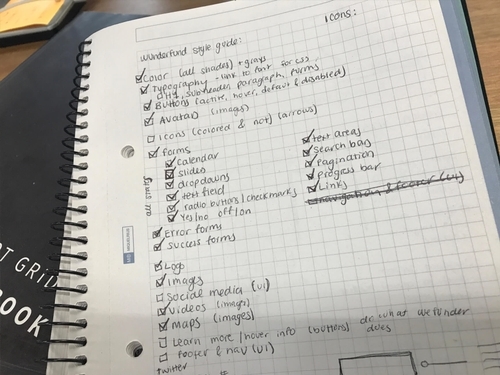 icons:
wunderfund style guide:
color (all shades) + grays
Typography - link to font for css
all H, subheader, paragraph, forms
Buttons (active, hover, default & disabled)
Avatars (images)
icons (colored & not) (arrows)
forms
calendar
slides
dropdowns
text field
radio buttons / checkmarks
Yes/no off/on
all states
text areas
Search bars
Pagination
progress bar
Links
navigation & footer (UI)
Error forms
success forms
Logo
images
Social media (UI)
Videos (images)
Maps (images)
Learn more / hover info (buttons)
does
footer & nav (UI)
twitter
GRID
BOOK